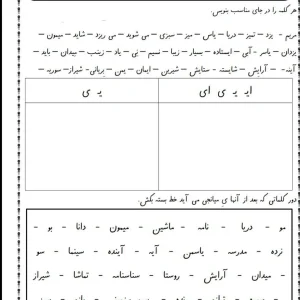 هر کلمه را در جای مناسب بنویس.
مریم - یزد – تمیز – دریا – یاس – میز – سبزی – می شوید – می ریزد – شاید – میمون –
یزدان – یاسر – آبی – ایستاده – بسیار – زیبا – نسیم – نی – یاد – زینب – میدان – باید –
آینه- – آرایش – شایسته- ستایش – شیرین – ایمان – یس – بریانی- شیراز– سوریه –
ایـ یـ ی ای
یـ ی
دور کلماتی که بعد از آنها ی میانجی می آید خط بسته بکش.
مو – دریا – نامه – ماشین – میمون – دانا – بو –
نرده – مدرسه – یاسمن – آیه – آینده – سینما – سو
– میدان – آرایش – روستا – شناسنامه – تماشا – شیراز